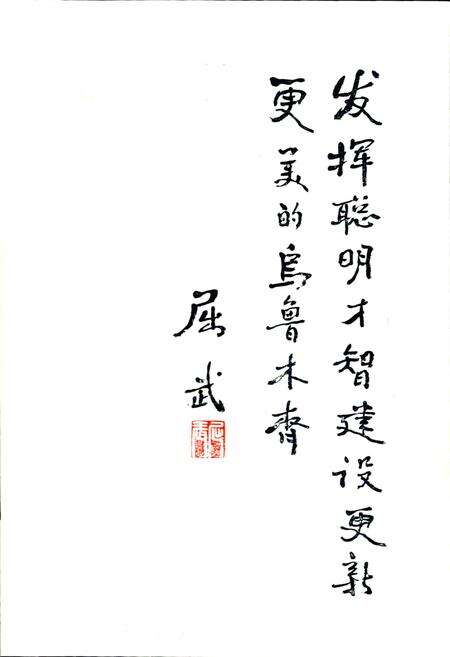 发挥聪明才智建设更新
更美的乌鲁木齐
屈武